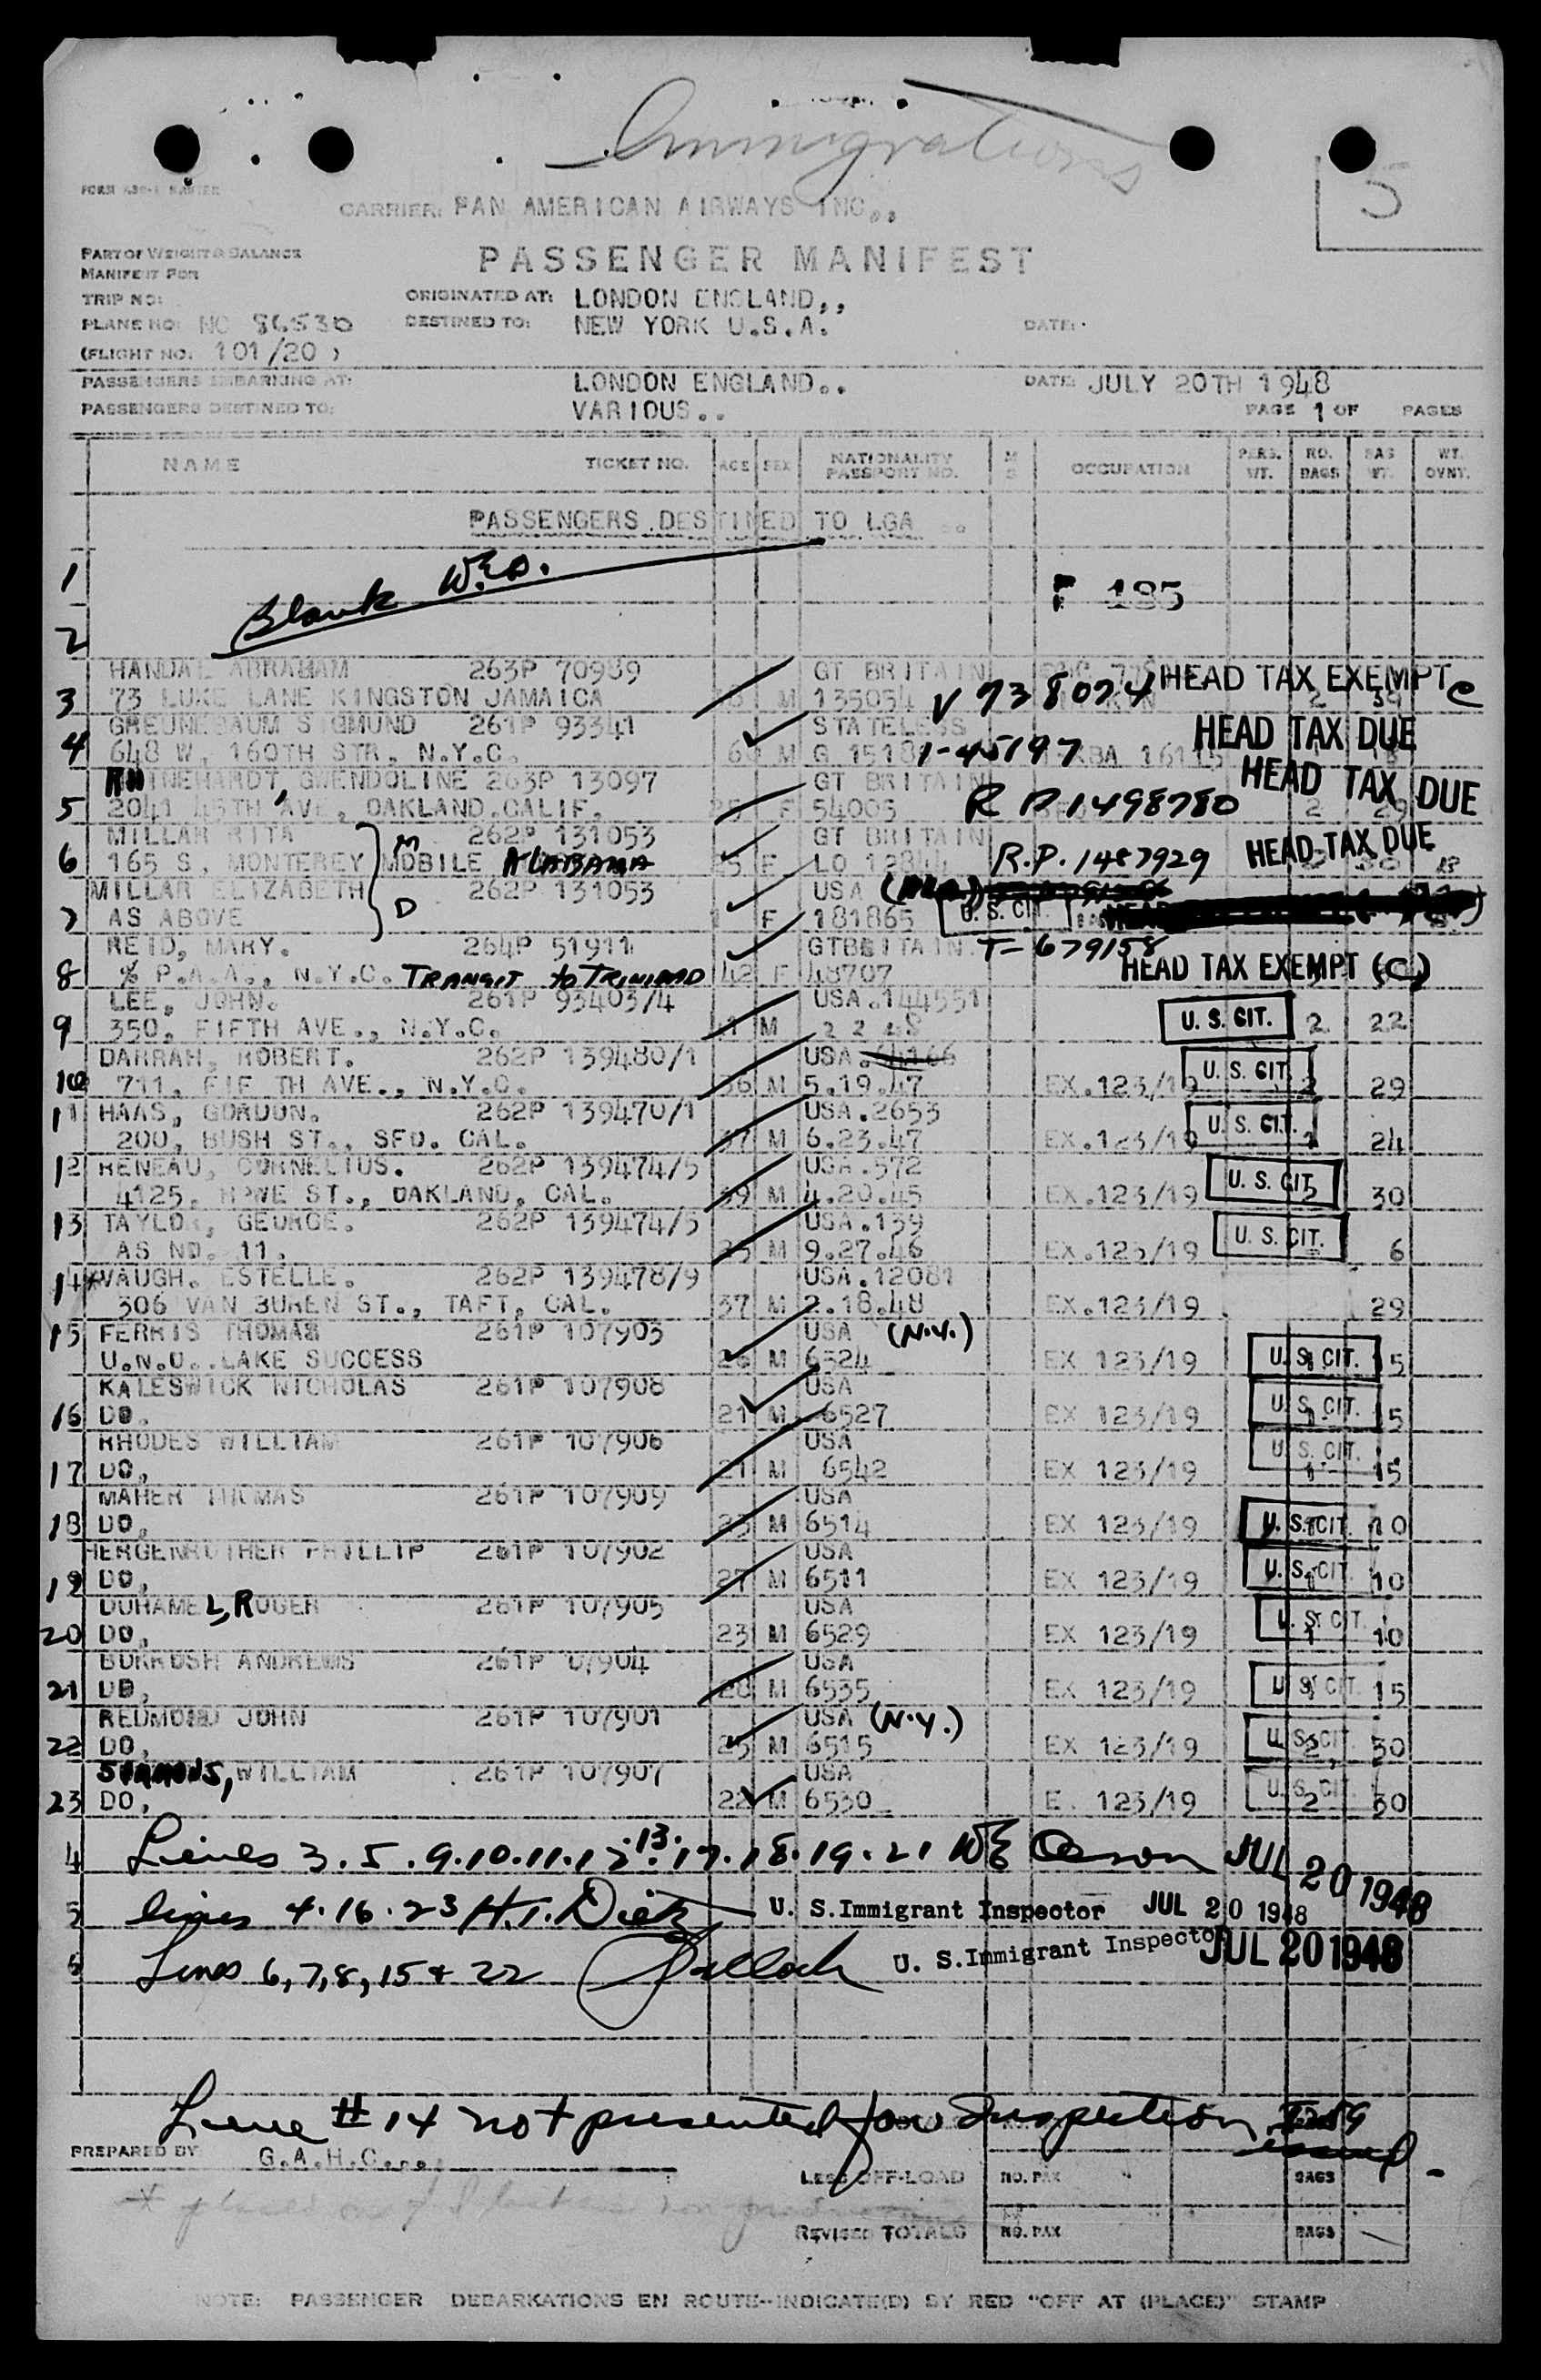 Immigration
5
CARRIER: PAN AMERICAN AIRWAYS INC..
PART OF WEIGHT & BALANCE
MANIFEST FOR
PASSENGER MANIFEST
TRIP NO:
ORIGINATED AT: LONDON ENGLAND,,
PLANE NO: NC 86530
DESTINED TO: NEW YORK U.S.A.
DATE:
(FLIGHT NO. 101/20 )
PASSENGERS EMBARKING AT: LONDON ENGLAND.. DATE: JULY 20TH 1948
PASSENGERS DESTINED TO: VARIOUS.. PAGE 1 OF PAGES
NAME TICKET NO. AGE SEX NATIONALITY PASSPORT NO. M S OCCUPATION PERS. WT. NO. BAGS BAG WT. WT. OVNT.
PASSENGERS DESTINED TO LGA ..
1 Blank W.E.O. F 195
2
HANDAL ABRAHAM 263P 70989 GT BRITAIN HEAD TAX EXEMPT C
3 73 LUKE LANE KINGSTON JAMAICA M 135054 V 738074
SIGMUND 261P 93341 STATELESS HEAD TAX DUE
4 648 W. 160TH STR. N.Y.C. M 1-45197
GWENDOLINE 263P 13097 GT BRITAIN HEAD TAX DUE
5 2041 45TH AVE, OAKLAND.CALIF. F 54005 R P 1498780
MILLAR RITA M 262P 131053 GT BRITAIN
6 165 S. MONTEREY MOBILE ALABAMA F R.P. 1487929 HEAD TAX DUE
MILLAR ELIZABETH 262P 131053 USA
7 AS ABOVE D F 181865 U.S. CIT.
REID, MARY. 264P 51911 GTBRITAIN. T-679158
8 % P.A.A., N.Y.C. TRANSIT to TRINIDAD 42 F 48707 HEAD TAX EXEMPT (C)
LEE, JOHN. 261P 93403/4 USA.144551
9 350. FIFTH AVE., N.Y.C. M U. S. CIT. 2 22
DARRAH, ROBERT. 262P 139480/1 USA.
10 711. FIFTH AVE., N.Y.C. 36 M 5.19.47 EX.123/19 U. S. CIT. 29
11 HAAS, GORDON. 262P 139470/1 USA.2653
200, BUSH ST., SFO. CAL. 37 M 6.23.47 EX.123/19 U. S. CIT. 24
12 RENEAU, CORNELIUS. 262P 139474/5 USA.572
4125. HOWE ST., OAKLAND, CAL. 39 M 4.20.45 EX.123/19 U. S. CIT. 30
13 TAYLOR, GEORGE. 262P 139474/5 USA.139
AS NO. 11. M 9.27.46 EX.123/19 U. S. CIT. 6
14 *VAUGH. ESTELLE. 262P 139478/9 USA.12081
306 VAN BUREN ST., TAFT, CAL. 37 M 2.18.48 EX.123/19 29
15 FERRIS THOMAS 261P 107903 USA (N.Y.)
U.N.O..LAKE SUCCESS 26 M 6524 EX 123/19 U. S. CIT. 15
KALESWICK NICHOLAS 261P 107908 USA
16 DO. 21 M 6527 EX 123/19 U. S. CIT. 15
RHODES WILLIAM 261P 107906 USA
17 DO, 21 M 6542 EX 123/19 U. S. CIT. 15
MAHER THOMAS 261P 107909 USA
18 DO, 23 M 6514 EX 123/19 U. S. CIT. 10
HERGENROTHER PHILLIP 261P 107902 USA
19 DO, 27 M 6511 EX 123/19 U. S. CIT. 10
DUHAMEL, ROGER 261P 107905 USA
20 DO, 23 M 6529 EX 123/19 U. S. CIT. 10
ANDREWS 261P 07904 USA
21 DO, 28 M 6535 EX 123/19 U. S. CIT. 15
REDMOND JOHN 261P 107901 USA (N.Y.)
22 DO, 25 M 6515 EX 123/19 U. S. CIT. 30
SIMMONS, WILLIAM 261P 107907 USA
23 DO, 22 M 6530 E. 123/19 U. S. CIT. 2 30
4 Lines 3.5.9.10.11.12.13.17.18.19.21 JUL 20 1948
5 lines 4.16.23 H.T. Dietz U. S. Immigrant Inspector JUL 20 1948
6 Lines 6,7,8,15 & 22 U. S. Immigrant Inspector JUL 20 1948
Line # 14 not presented for Inspection, I-259
issued -
PREPARED BY G.A.H.C...
LESS OFF-LOAD NO. PAX BAGS
REVISED TOTALS NO. PAX BAGS
NOTE: PASSENGER DEBARKATIONS EN ROUTE--INDICATE(D) BY RED "OFF AT (PLACE)" STAMP